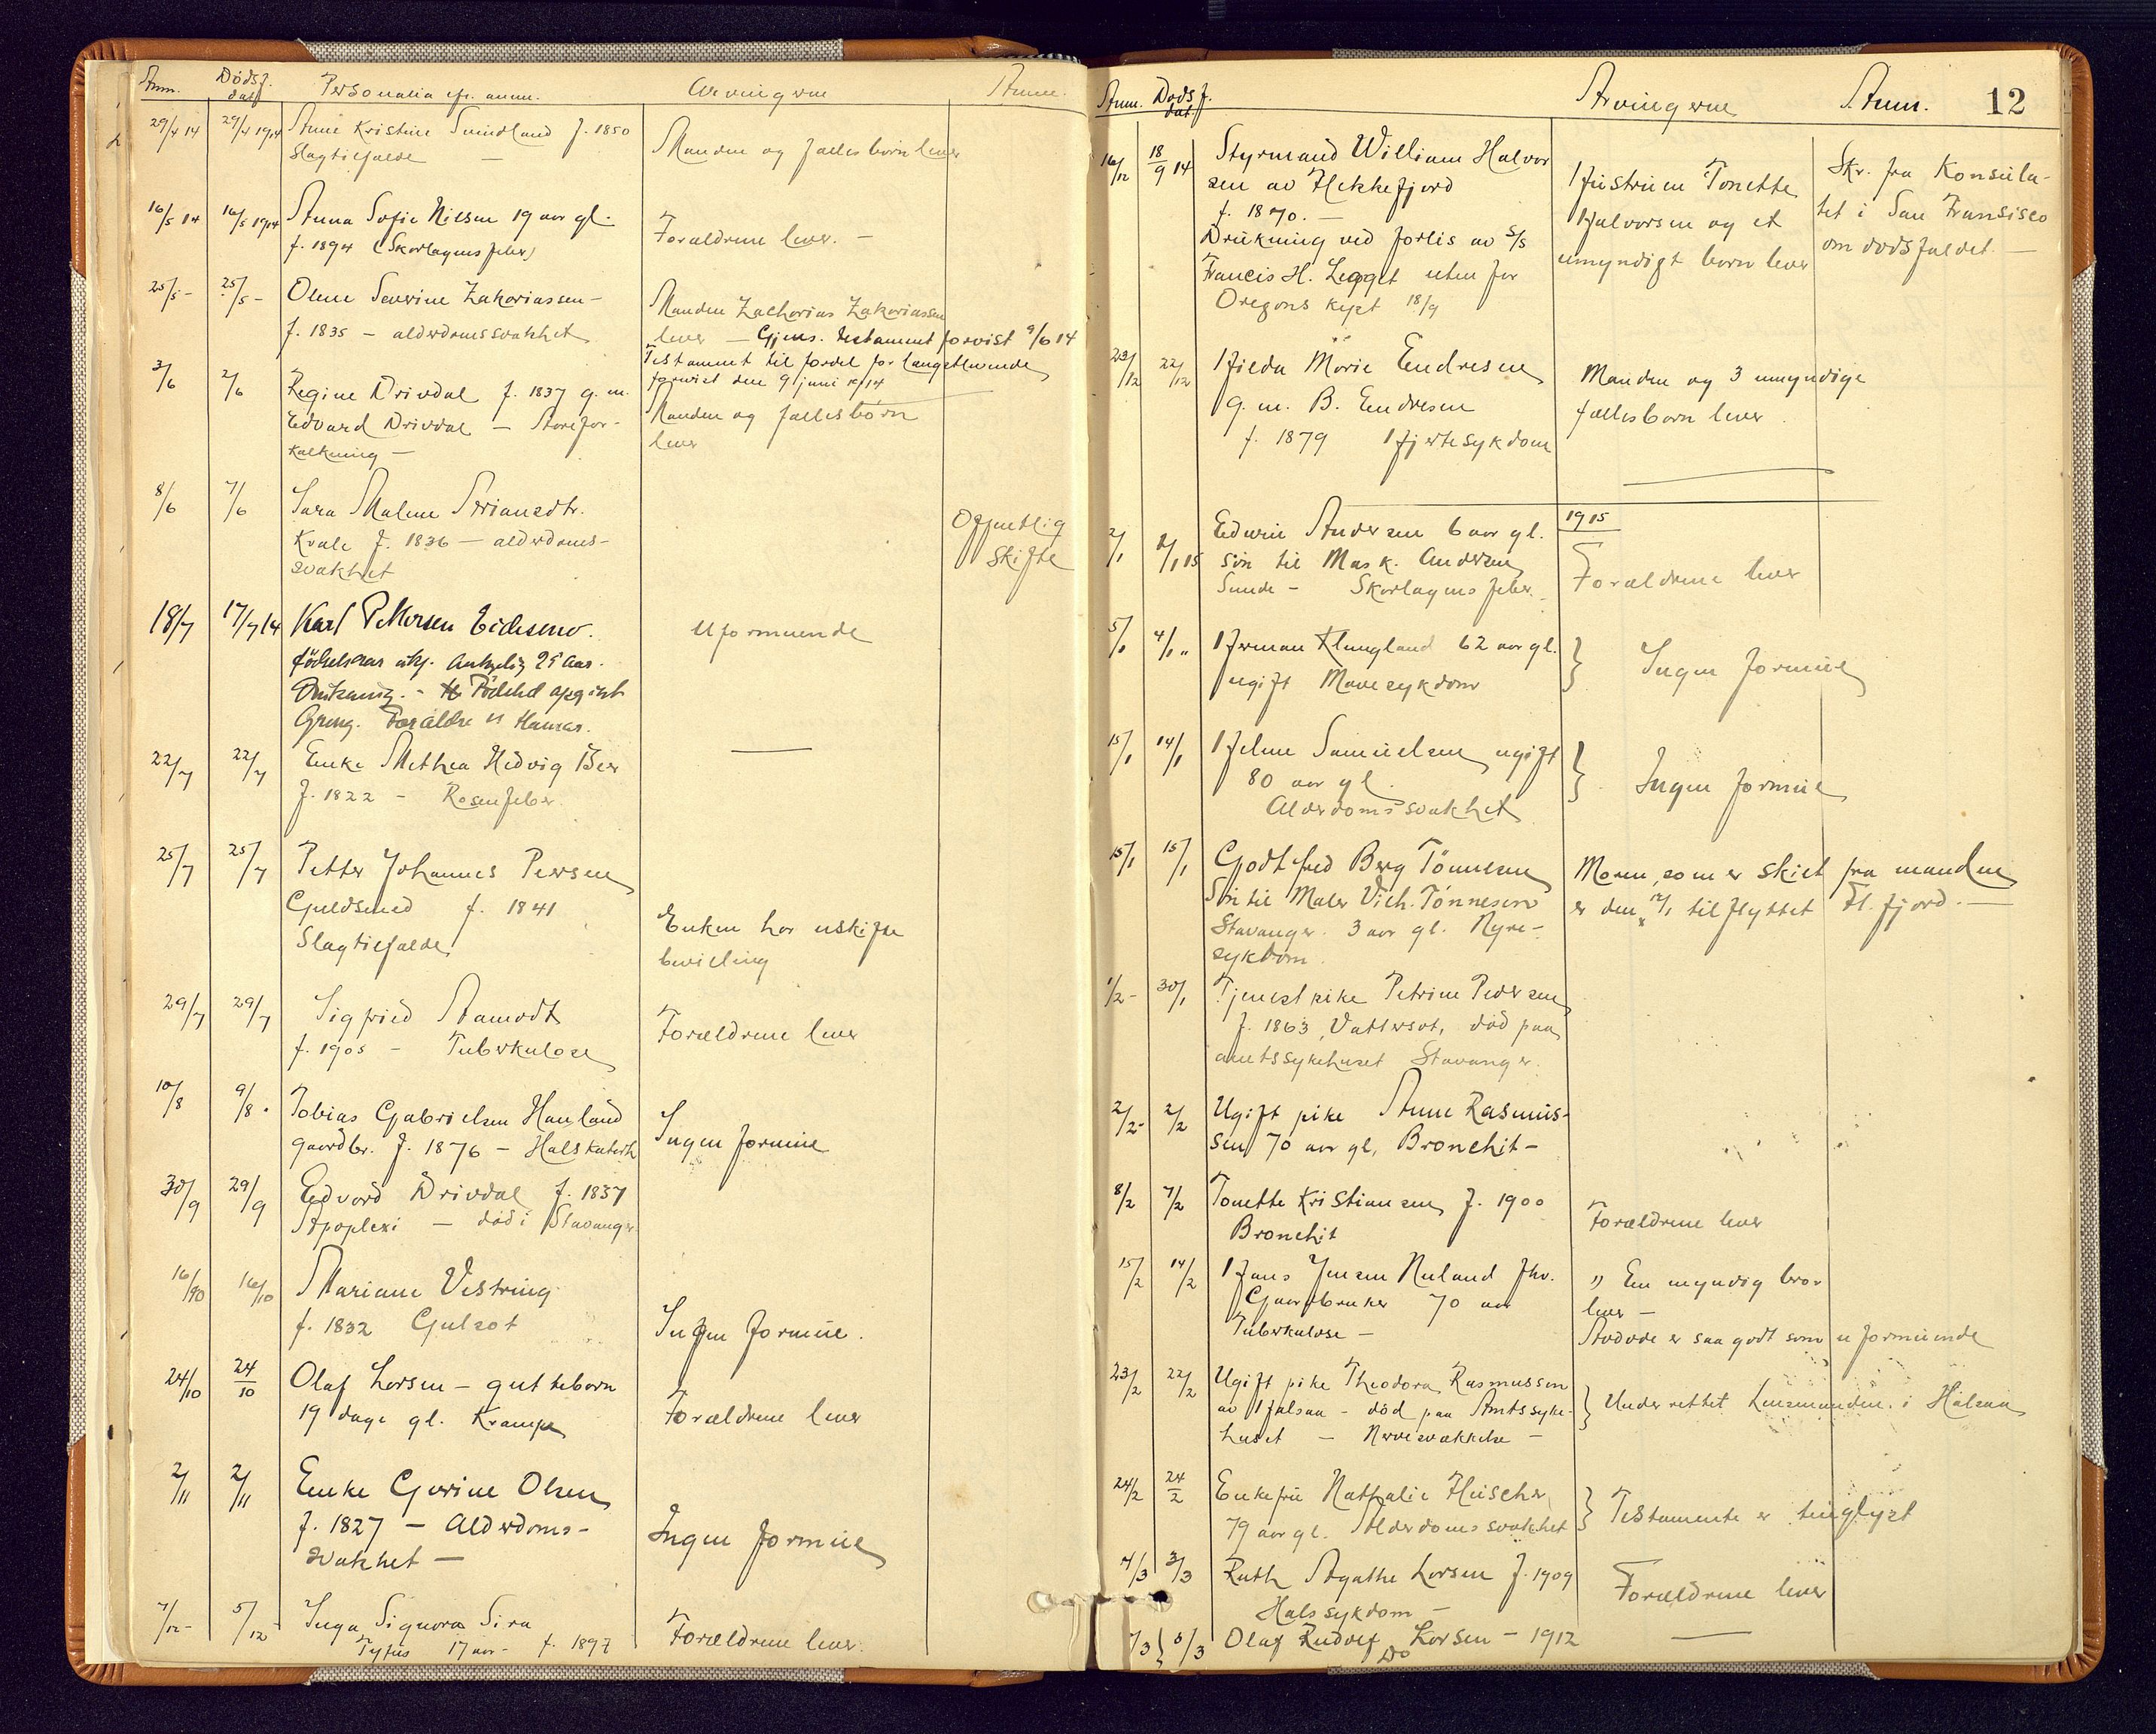 Anm. Dødsf. dat. Personalia efr. anm. Arvingerne Anm.
29/4 14 29/4 1914 Anne Kristine Sundland f. 1850
Slagtilfælde — Manden og fællesbörn lever
16/5 14 16/5 1914 Anna Sofie Nilsen 19 aar gl.
f. 1894 (Skarlagensfeber) Forældrene lever. —
25/5 - 25/5 - Olene Severine Zakariassen —
f. 1835 — alderdomssvakhet
Manden Zacharias Zakariassen
lever — Gjens. testament forvist 9/6 14
Testament til fordel for længstlevende
forvist den 9 juni 1914
3/6 2/6 Regine Drivdal f. 1837 g. m.
Edvard Drivdal — Aarefor-
kalkning —
Manden og fællesbörn
lever
8/6 7/6 Sara Malene Arianesdtr.
Kvale f. 1836 — alderdoms-
svakhet
Offentlig
Skifte
18/7 17/7 14 Karl Pettersen
födselsaar ubj. Antagelig 25 Aar.
Drukning. —
Foraldre Hamar.
Uformuende
22/7 22/7 Enke Methea Hedvig Beer
f. 1822 — Rosenfeber.
25/7 25/7 Petter Johannes Peersen
Guldsmed f. 1841
Slagtilfælde
Enken har uskifte
bevilling
29/7 29/7 Sigfried Aamodt
f. 1905 — Tuberkulose
Forældrene lever
10/8 9/8 . Tobias Gabrielsen Hauland
gaardbr. f. 1876 — Halskatarh
Ingen formue
30/9 29/9 Edvard Drivdal f. 1837
Apoplexi — död i Stavanger
16/10 16/10 Mariane Vestring
f. 1832 Gulsot
Ingen formue.
24/10 24/10 Olaf Larsen — guttebarn
19 dage gl. Krampe
Forældrene lever
2/11 2/11 Enke Gurine Olsen
f. 1827 — Alderdoms-
svakhet —
Ingen formue
7/12 - 5/12 Inga Signora Sira
Tyfus 17 aar — f. 1897
Forældrene lever.
Anm. Dødsf. dat. Arvingerne Anm. 12
16/12 18/9 14 Styrmand William Halvor
sen av Hekkefjord
f. 1870. —
Drukning ved forlis av S/S
Francis H. Legget uten for
Oregons kyst 18/9
Hustruen Tonette
Halvorsen og et
umyndigt barn lever
Skr. fra Konsula-
tet i San Fransisco
om dödsfaldet —
23/12 22/12 Hilda Marie Endresen
g. m. B. Endresen
f. 1879 Hjertesykdom
Manden og 3 umyndige
fællesbarn lever.
1915
2/1 2/1 15 Edwin Andersen 6 aar gl.
sön til Mask. Andersen
Sunde — Skarlagensfeber.
Forældrene lever
5/1 4/1 „ Herman Klungland 62 aar gl.
ugift Mavesykdom
Ingen formue
15/1 14/1 Helene Samuelsen ugift
80 aar gl.
Alderdomssvakhet
Ingen formue
15/1 15/1 Godtfred Berg Tönnesen
Sön til Maler Vich. Tönnesen
Stavanger. 3 aar gl. Nyre-
sykdom.
Moren, som er skilt fra manden
er den tilflyttet Fl.fjord. —
1/2 - 30/1 Tjenestpike Petrine Pedersen
f. 1863, Vattersot, död paa
amtssykehuset Stavanger.
2/2 - 2/2 Ugift pike Anne Rasmus-
sen 70 aar gl, Bronchit —
8/2 7/2 Tonette Kristiansen f. 1900
Bronchit
Forældrene lever
15/2 14/2 Hans Jensen Nuland fhv.
Gaardbruker 70 aar
Tuberkulose —
„ En myndig bror
lever —
Avdöde er saa godt som uformuende
23/2 22/2 Ugift pike Theodora Rasmussen
av Halsaa — död paa Amtssyke-
huset — Nervesvækkelse —
Underrettet Lensmanden i Halsaa
24/2 24/2 Enkefru Nathalie Fuischer
79 aar gl. Alderdomssvakhet
Testamente er tinglyst
4/3 3/3 Ruth Agathe Larsen f. 1909
Halssykdom —
Forældrene lever
7/3 5/3 Olaf Rudolf Larsen — 1912
Do